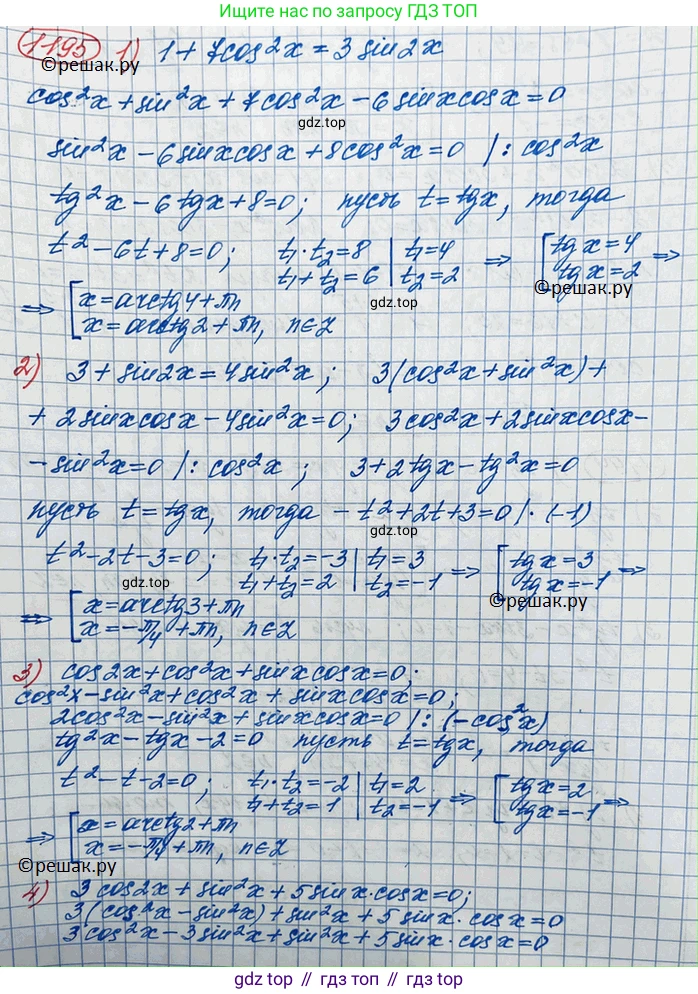 Находите больше по запросу ГДЗ ТОП
1195 1) 1 + 7cos²x = 3 sin2x
©решак.ру
cos²x + sin²x + 7cos²x - 6 sinxcosx = 0
gdz.top
sin²x - 6sinxcosx + 8cos²x = 0 |: cos²x
tg²x - 6tgx + 8 = 0; пусть t = tgx, тогда
t² - 6t + 8 = 0; t₁·t₂ = 8 | t₁ = 4 ⇒ [ tgx = 4 ⇒
t₁ + t₂ = 6 | t₂ = 2 tgx = 2
©решак.ру
gdz.top
⇒ [ x = arctg4 + πn
x = arctg2 + πn, n∈Z
2) 3 + sin2x = 4sin²x; 3(cos²x + sin²x) +
+ 2sinxcosx - 4sin²x = 0; 3cos²x + 2sinxcosx -
gdz.top
- sin²x = 0 |: cos²x; 3 + 2tgx - tg²x = 0
пусть t = tgx, тогда - t² + 2t + 3 = 0 |· (-1)
t² - 2t - 3 = 0; t₁·t₂ = -3 | t₁ = 3 ⇒ [ tgx = 3 ⇒
t₁ + t₂ = 2 | t₂ = -1 tgx = -1
gdz.top
©решак.ру
⇒ [ x = arctg3 + πn
x = -π/4 + πn, n∈Z
3) cos2x + cos²x + sinxcosx = 0;
cos²x - sin²x + cos²x + sinxcosx = 0;
2cos²x - sin²x + sinxcosx = 0 |: (-cos²x)
tg²x - tgx - 2 = 0 пусть t = tgx, тогда
t² - t - 2 = 0; t₁·t₂ = -2 | t₁ = 2 ⇒ [ tgx = 2 ⇒
t₁ + t₂ = 1 | t₂ = -1 tgx = -1
⇒ [ x = arctg2 + πn
x = -π/4 + πn, n∈Z
©решак.ру
4) 3cos2x + sin²x + 5sinx·cosx = 0;
3(cos²x - sin²x) + sin²x + 5sinx·cosx = 0
3cos²x - 3sin²x + sin²x + 5sinx·cosx = 0
gdz.top // гдз.топ // gdz.top // гдз.топ